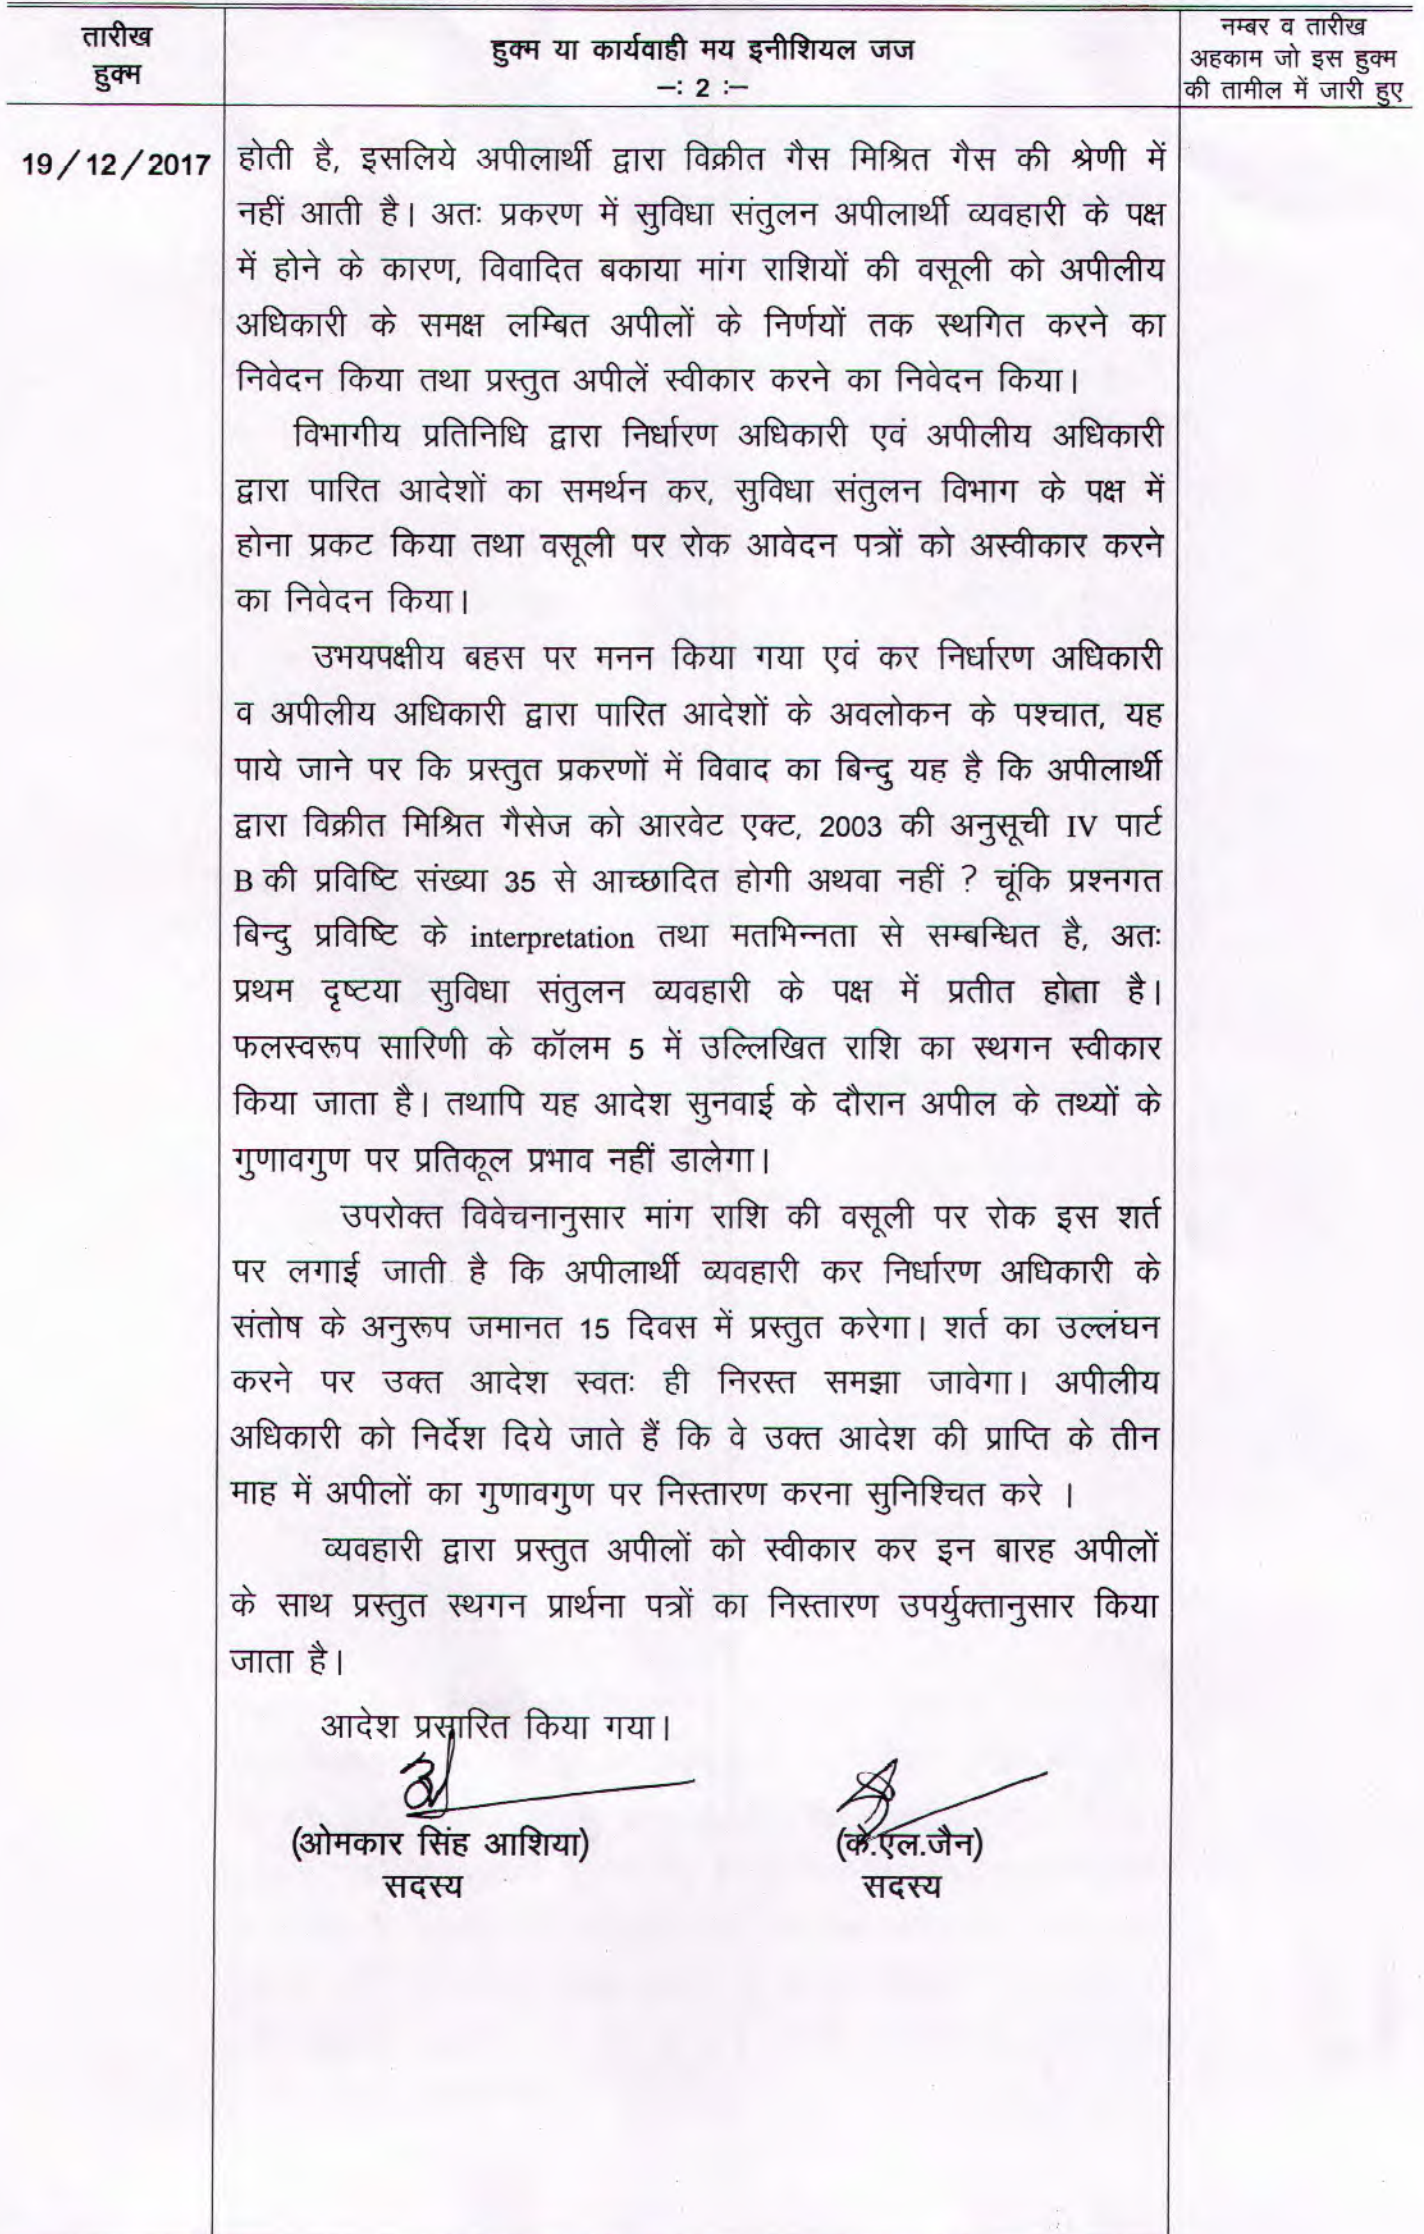 तारीख
हुक्म
हुक्म या कार्यवाही मय इनीशियल जज
–: 2 :–
नम्बर व तारीख
अहकाम जो इस हुक्म
की तामील में जारी हुए
19/12/2017
होती है, इसलिये अपीलार्थी द्वारा विक्रीत गैस मिश्रित गैस की श्रेणी में
नहीं आती है। अतः प्रकरण में सुविधा संतुलन अपीलार्थी व्यवहारी के पक्ष
में होने के कारण, विवादित बकाया मांग राशियों की वसूली को अपीलीय
अधिकारी के समक्ष लम्बित अपीलों के निर्णयों तक स्थगित करने का
निवेदन किया तथा प्रस्तुत अपीलें स्वीकार करने का निवेदन किया।
विभागीय प्रतिनिधि द्वारा निर्धारण अधिकारी एवं अपीलीय अधिकारी
द्वारा पारित आदेशों का समर्थन कर, सुविधा संतुलन विभाग के पक्ष में
होना प्रकट किया तथा वसूली पर रोक आवेदन पत्रों को अस्वीकार करने
का निवेदन किया।
उभयपक्षीय बहस पर मनन किया गया एवं कर निर्धारण अधिकारी
व अपीलीय अधिकारी द्वारा पारित आदेशों के अवलोकन के पश्चात, यह
पाये जाने पर कि प्रस्तुत प्रकरणों में विवाद का बिन्दु यह है कि अपीलार्थी
द्वारा विक्रीत मिश्रित गैसेज को आरवेट एक्ट, 2003 की अनुसूची IV पार्ट
B की प्रविष्टि संख्या 35 से आच्छादित होगी अथवा नहीं ? चूंकि प्रश्नगत
बिन्दु प्रविष्टि के interpretation तथा मतभिन्नता से सम्बन्धित है, अतः
प्रथम दृष्टया सुविधा संतुलन व्यवहारी के पक्ष में प्रतीत होता है।
फलस्वरूप सारिणी के कॉलम 5 में उल्लिखित राशि का स्थगन स्वीकार
किया जाता है। तथापि यह आदेश सुनवाई के दौरान अपील के तथ्यों के
गुणावगुण पर प्रतिकूल प्रभाव नहीं डालेगा।
उपरोक्त विवेचनानुसार मांग राशि की वसूली पर रोक इस शर्त
पर लगाई जाती है कि अपीलार्थी व्यवहारी कर निर्धारण अधिकारी के
संतोष के अनुरूप जमानत 15 दिवस में प्रस्तुत करेगा। शर्त का उल्लंघन
करने पर उक्त आदेश स्वतः ही निरस्त समझा जावेगा। अपीलीय
अधिकारी को निर्देश दिये जाते हैं कि वे उक्त आदेश की प्राप्ति के तीन
माह में अपीलों का गुणावगुण पर निस्तारण करना सुनिश्चित करे ।
व्यवहारी द्वारा प्रस्तुत अपीलों को स्वीकार कर इन बारह अपीलों
के साथ प्रस्तुत स्थगन प्रार्थना पत्रों का निस्तारण उपर्युक्तानुसार किया
जाता है।
आदेश प्रसारित किया गया।
(ओमकार सिंह आशिया)
सदस्य
(के.एल.जैन)
सदस्य